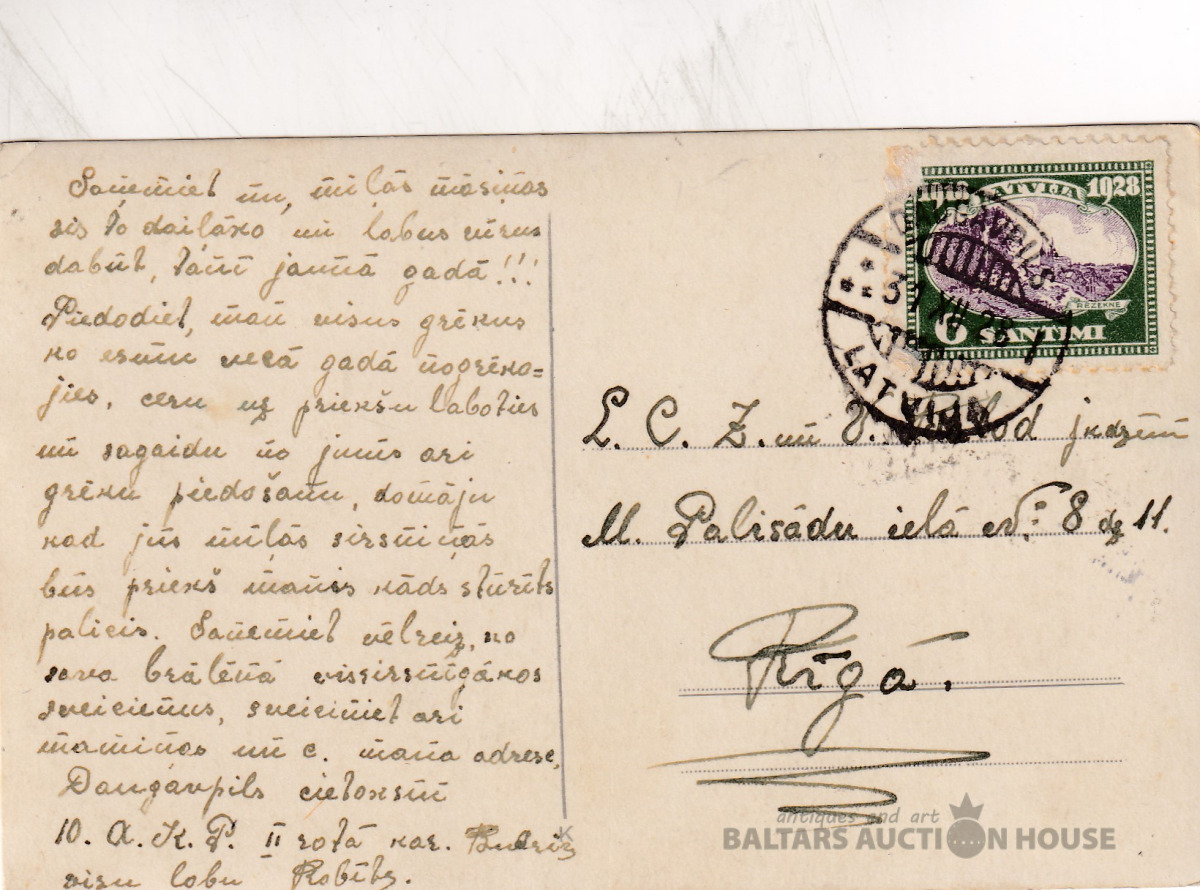 Saņemiet un, mīļās māsiņas
sis to daiļāko un labus vīrus
dabūt, šāņī jaunā gadā!!!
Piedodiet, man visus grēkus
ko esmu vecā gadā nogrēko=
jies, ceru uz priekšu laboties
un sagaidu no jums ari
grēku piedošanu, domāju
kad jūs mīļās sirsniņās
būs priekš manis kāds stūrīts
palicis. Saņemiet vēlreiz, no
sava brālēna vissirsnīgākos
sveicienus, sveiciniet ari
mamiņas un c. mana adrese,
Daugavpils cietoksnī
10. A. K. P. II rotā kar.
visu labu Robīts.
1928
LATVIJA
RĒZEKNE
6 SANTIMI
DAUGAVPILS
31 XII 28
LATVIJA
L. C. Z. un V. jkdzēm
M. Palisādu ielā № 8 dz 11.
Rīgā.
K
antiques and art
BALTARS AUCTION HOUSE